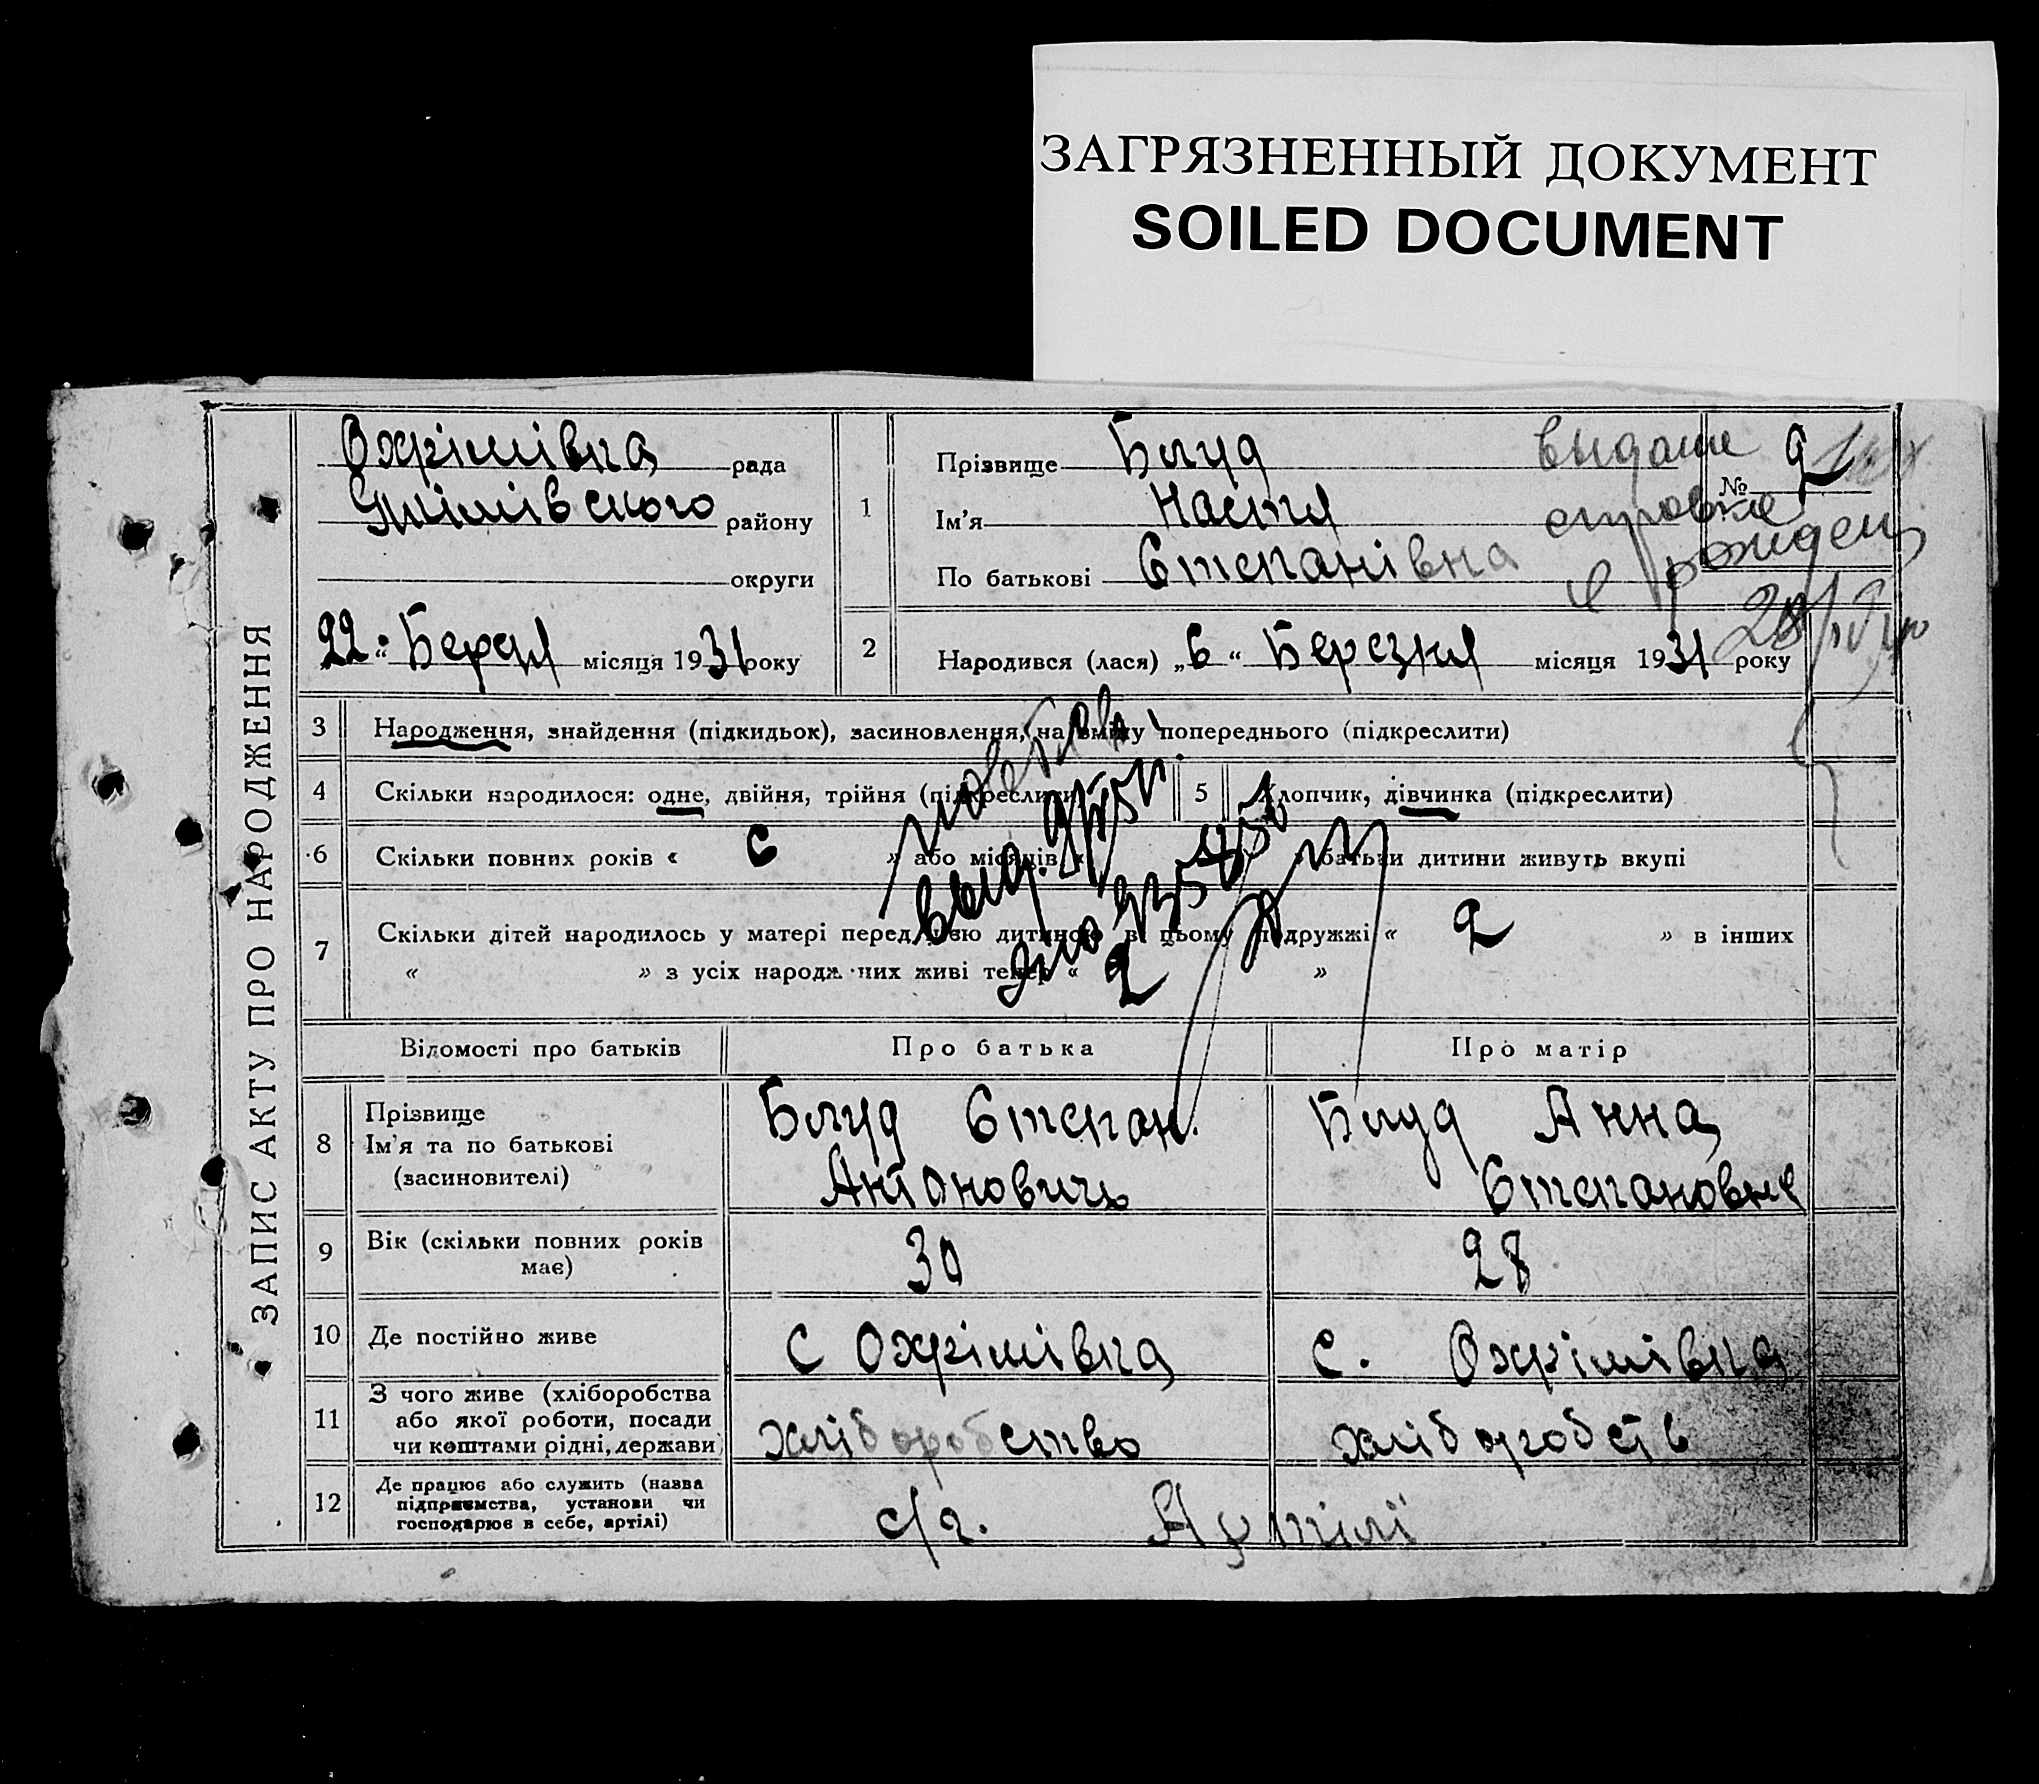 ЗАГРЯЗНЕННЫЙ ДОКУМЕНТ
SOILED DOCUMENT
ЗАПИС АКТУ ПРО НАРОДЖЕННЯ
Охрімівка рада
району
округи
22 “ місяця 1931 року
1
Прізвище Блуд
Ім'я Настя
По батькові Степанівна
№ 2
выдане
справка
о рожден
2
Народився (лася) „6“ Березня місяця 1931 року
3 Народження, знайдення (підкидьок), засиновлення, на зміну попереднього (підкреслити)
4 Скільки народилося: одне, двійня, трійня (підкреслити)
5 Хлопчик, дівчинка (підкреслити)
6 Скільки повних років « 6 » або місяців « » батьки дитини живуть вкупі
7 Скільки дітей народилось у матері перед цією дитиною в цьому подружжі « 2 » в інших
« » з усіх народж них живі тепер « 2 »
Відомості про батьків Про батька Про матір
8 Прізвище
Ім'я та по батькові
(засиновителі)
Блуд Степан.
Антоновичь
Блуд Анна
Степановне
9 Вік (скільки повних років
має)
30 28
10 Де постійно живе с Охрімівка с. Охрімівка
11 З чого живе (хліборобства
або якої роботи, посади
чи коштами рідні, держави)
хліборобство
12 Де працює або служить (назва
підприємства, установи чи
господарює в себе, артілі)
с/г. Артілі